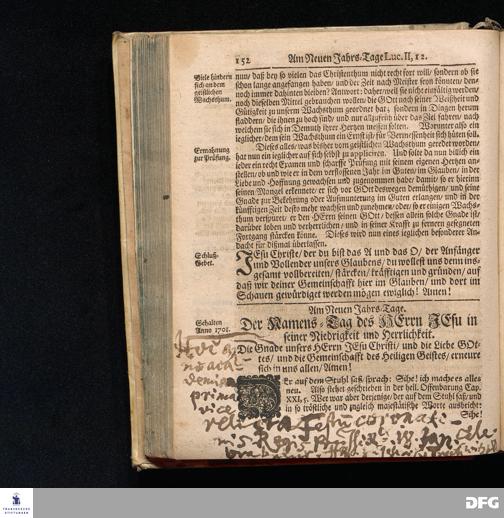 152 Am Neuen Jahrs-Tage Luc. II, 12.
Viele hindern
sich an dem
geistlichen
Wachsthum.
nun/ daß bey so vielen das Christenthum nicht recht fort will/ sondern ob sie
schon lange angefangen haben/ und der Zeit nach Meister seyn könnten/ den-
noch immer dahinten bleiben? Antwort: daher/ weil sie nicht einfältig werden/
noch dieselben Mittel gebrauchen wollen/ die GOtt nach seiner Weißheit und
Gütigkeit zu unserm Wachsthum geordnet hat; sondern in Dingen herum
fladdern/ die ihnen zu hoch sind/ und nur allzusehr über das Ziel fahren/ nach
welchem sie sich in Demuth ihrer Hertzen messen solten. Worumb auch ein
ieglicher/ dem sein Wachsthum ein Ernst ist/ für Vermessenheit sich hüten soll.
Ermahnung
zur Prüfung.
Dieses alles/ was bisher vom geistlichen Wachsthum geredet worden/
hat nun ein ieglicher auf sich selbst zu appliciren. Und solte da nun billich ein
ieder ein recht Examen und scharffe Prüfung mit seinem eigenen Hertzen an-
stellen/ ob und wie er in dem verflossenen Jahr im Guten/ im Glauben/ in der
Liebe und Hoffnung gewachsen und zugenommen habe; damit/ so er hierinn
seinen Mangel erkennet/ er sich vor GOtt deswegen demüthigen/ und seine
Gnade zur Bekehrung oder Aufmunterung im Guten erlangen/ und in der
künfftigen Zeit desto mehr wachsen und zunehmen/ oder/ so er einigen Wachs-
thum verspüret/ er den HErrn seinen GOtt/ dessen allein solche Gnade ist/
darüber loben und verherrlichen/ und in seiner Krafft zu fernern gesegneten
Fortgang stärcken könne. Dieses wird nun eines ieglichen besonderer An-
dacht für dißmal überlassen.
Schluß-
Gebet.
JEsu Christe/ der du bist das A und das O/ der Anfänger
und Vollender unsers Glaubens/ du wollest uns denn ins-
gesamt vollbereiten/ stärcken/ kräfftigen und gründen/ auf
daß wir deiner Gemeinschafft hier im Glauben/ und dort im
Schauen gewürdiget werden mögen ewiglich! Amen!
Am Neuen Jahrs-Tage.
Gehalten
Anno 1701.
Der Namens-Tag des HErrn JEsu in
seiner Niedrigkeit und Herrlichkeit.
Die Gnade unsers HErrn JEsu Christi/ und die Liebe GOt-
tes/ und die Gemeinschafft des Heiligen Geistes/ erneure
sich in uns allen/ Amen!
DEr auf dem Stuhl saß/ sprach: Sihe! ich mache es alles
neu. Also stehet geschrieben in der heil. Offenbarung Cap.
XXI, 5. Wer war aber derjenige/ der auf dem Stuhl saß/ und
in so tröstliche und zugleich majestätische Worte ausbricht:
Sihe!
prima
vice